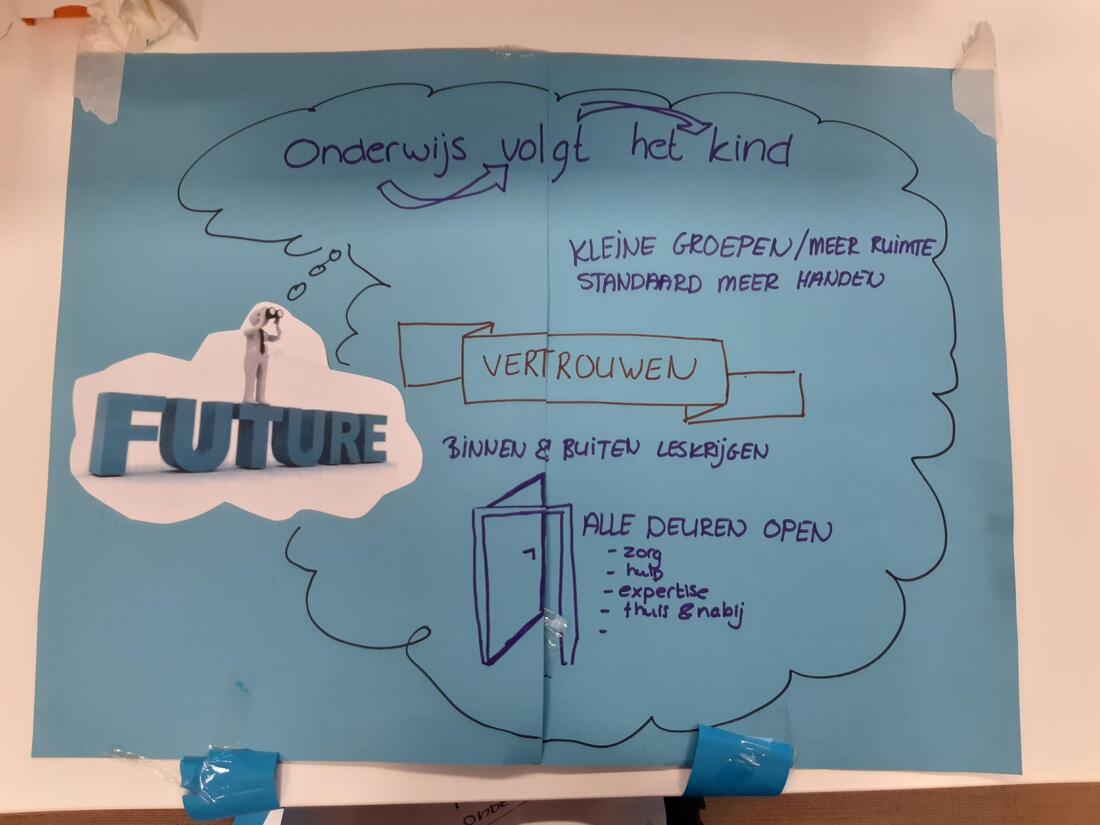 Onderwijs volgt het kind
KLEINE GROEPEN/MEER RUIMTE
STANDAARD MEER HANDEN
VERTROUWEN
FUTURE
BINNEN & BUITEN LESKRIJGEN
ALLE DEUREN OPEN
- zorg
- hulp
- expertise
- thuis & nabij
-